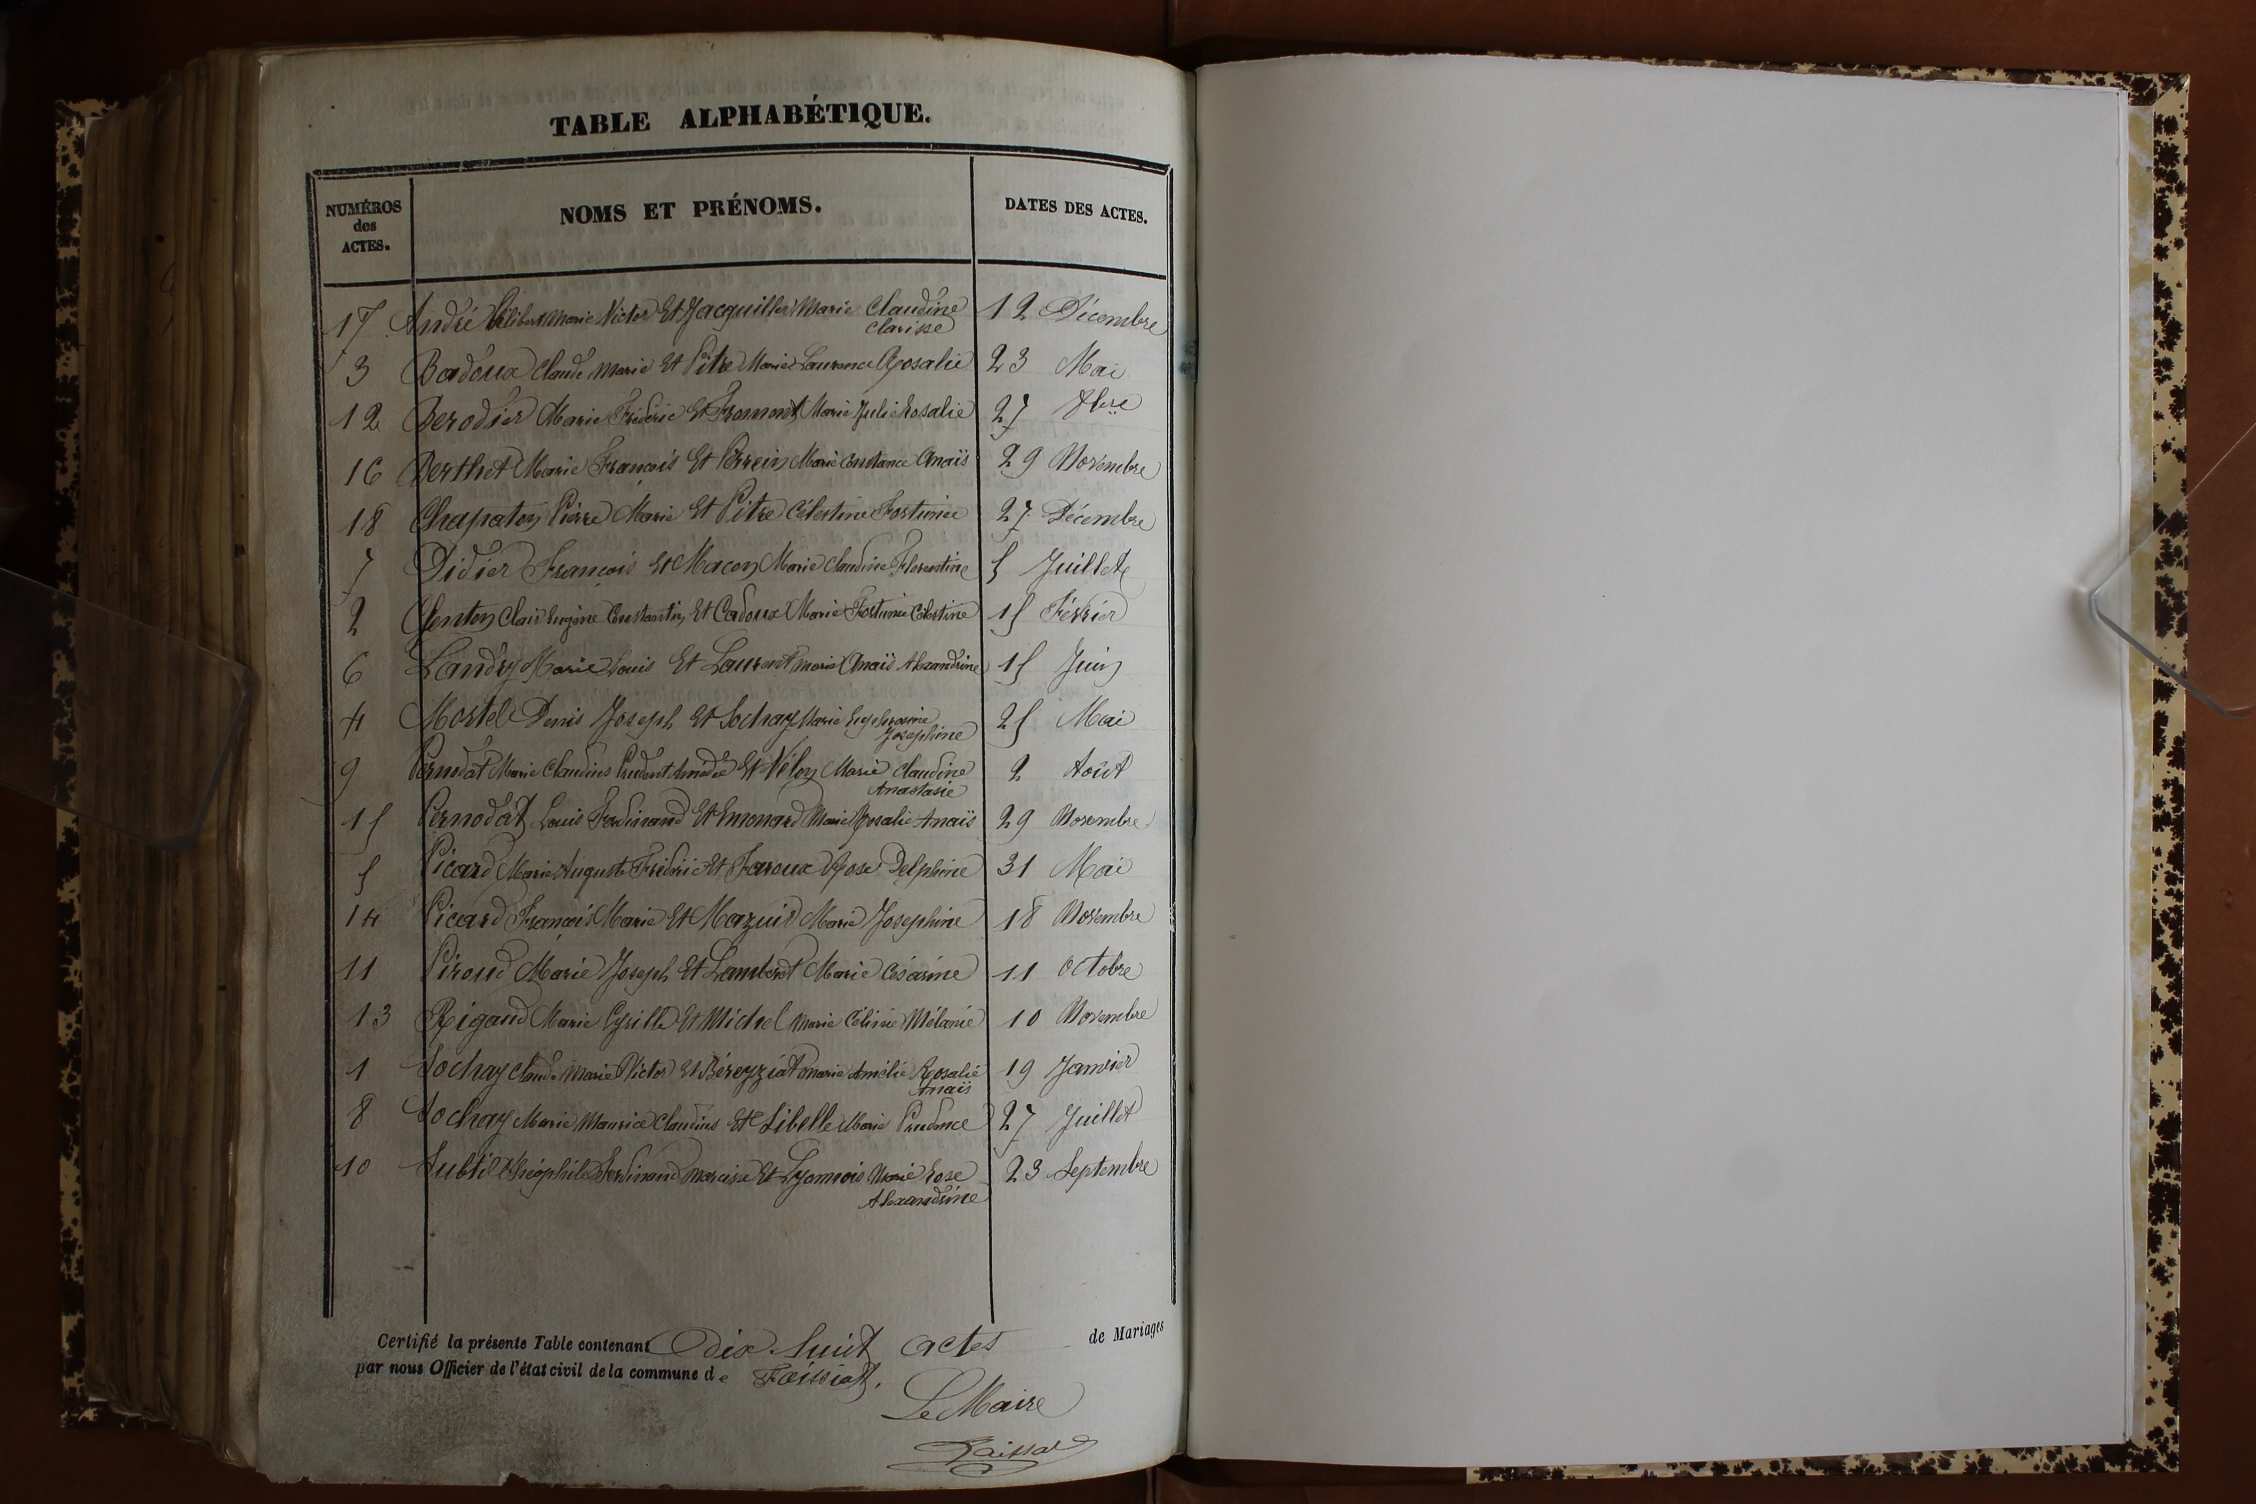 TABLE ALPHABÉTIQUE.
NUMÉROS des ACTES. NOMS ET PRÉNOMS. DATES DES ACTES.
17 André Philibert Marie Victor Et Jacquillet Marie Claudine 12 Décembre
Clarisse
3 Badoux Claude Marie Et Pitre Marie Laurence Rosalie 23 Mai
12 Berodier Marie Frédéric Et Fromont Marie Julie Rosalie 27 8bre
16 Berthet Marie François Et Perrein Marie Constance Anaïs 29 Novembre
18 Chapaton Pierre Marie Et Pitre Célestine Fortunée 27 Décembre
7 Didier François Et Macon Marie Claudine Florentine 5 Juillet
2 Genton Clair Eugène Constantin Et Cadoux Marie Fortunée Célestine 15 Février
6 Landry Marie Louis Et Laurent Marie Anaïs Alexandrine 15 Juin
4 Mortel Denis Joseph Et Sochay Marie Euphrosine 25 Mai
Josephine
9 Pernodat Marie Claudius Prudent Amédée Et Vélon Marie Claudine 2 Août
Anastasie
15 Pernodat Louis Ferdinand Et Emonard Marie Rosalie Anaïs 29 Novembre
5 Picard Marie Auguste Frédéric Et Faroux Rose Delphine 31 Mai
14 Picard François Marie Et Mazuir Marie Josephine 18 Novembre
11 Piroud Marie Joseph Et Lambert Marie Césarine 11 Octobre
13 Rigaud Marie Cyrille Et Michel Marie Céline Mélanie 10 Novembre
1 Sochay Claude Marie Victor Et Béreyziat Marie Amélie Rosalie 19 Janvier
Anaïs
8 Sochay Marie Maurice Claudius Et Libelle Marie Prudence 27 Juillet
10 Subtil Théophile Ferdinand Narcisse Et Lyonnois Marie Rose 23 Septembre
Alexandrine
Certifié la présente Table contenant Dix huit actes de Mariages
par nous Officier de l'état civil de la commune de Foissiat.
Le Maire